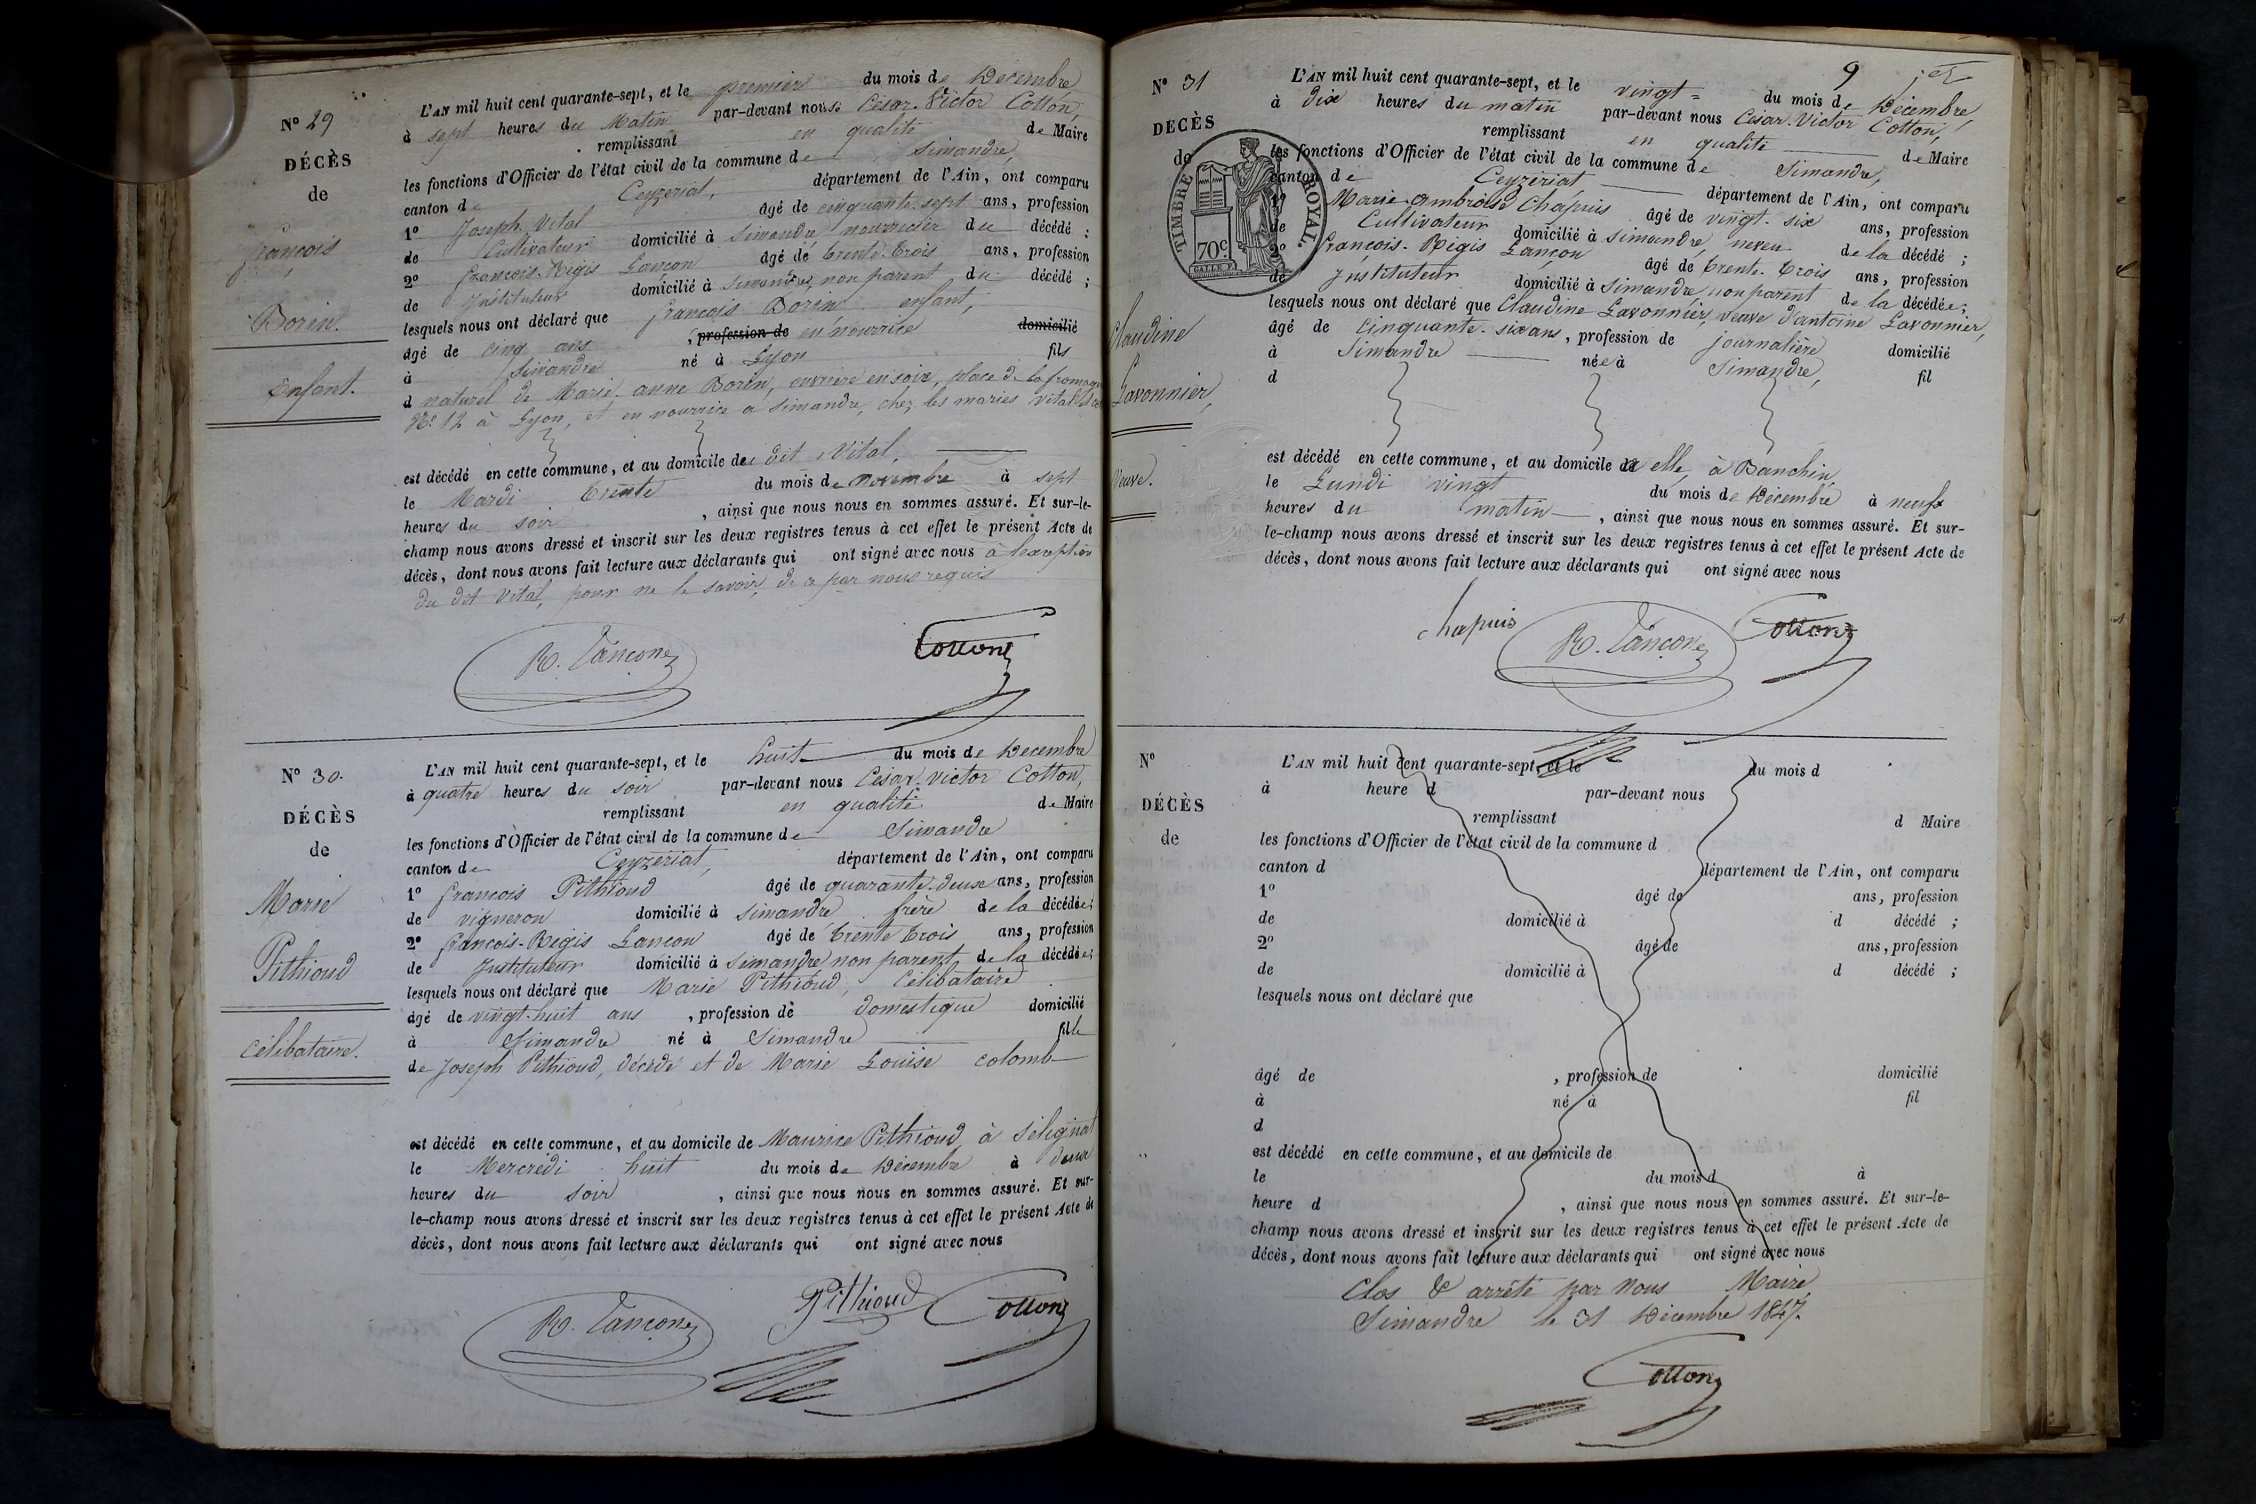 N° 29
DÉCÈS
de
François
Borin.
Enfant.
L'AN mil huit cent quarante-sept, et le premier du mois de Décembre
à sept heures du Matin par-devant nous César-Victor Cotton,
remplissant en qualité de Maire
les fonctions d'Officier de l'état civil de la commune de Simandre,
canton de Ceyzériat, département de l'Ain, ont comparu
1° Joseph Vital âgé de cinquante-sept ans, profession
de Cultivateur domicilié à Simandre nourricier du décédé ;
2° François-Régis Lançon âgé de trente-trois ans, profession
de Instituteur domicilié à Simandre, non parent du décédé ;
lesquels nous ont déclaré que François Borin enfant,
âgé de cinq ans, profession de en nourrice domicilié
à Simandre né à Lyon fils
d naturel de Marie-anne Borin, ouvrière en soie, place de la fromagerie
N° 12 à Lyon, et en nourrice à Simandre, chez les mariés Vital
est décédé en cette commune, et au domicile de dit Vital,
le Mardi trente du mois de Novembre à sept
heures du soir, ainsi que nous nous en sommes assuré. Et sur-le-
champ nous avons dressé et inscrit sur les deux registres tenus à cet effet le présent Acte de
décès, dont nous avons fait lecture aux déclarants qui ont signé avec nous à l'exception
du dit Vital, pour ne le savoir, de ce par nous requis
R. Lançon Cotton
N° 30.
DÉCÈS
de
Marie
Pithioud
célibataire.
L'AN mil huit cent quarante-sept, et le huit du mois de Décembre
à quatre heures du soir par-devant nous César-Victor Cotton,
remplissant en qualité de Maire
les fonctions d'Officier de l'état civil de la commune de Simandre
canton de Ceyzériat, département de l'Ain, ont comparu
1° François Pithioud âgé de quarante-deux ans, profession
de vigneron domicilié à Simandre frère de la décédée ;
2° François-Régis Lançon âgé de trente-trois ans, profession
de Instituteur domicilié à Simandre non parent de la décédée ;
lesquels nous ont déclaré que Marie Pithioud, célibataire
âgé de vingt-huit ans, profession de domestique domicilié
à Simandre né à Simandre fille
de Joseph Pithioud, décédé et de Marie Louise Colomb
est décédé en cette commune, et au domicile de Maurice Pithioud à Sélignat
le Mercredi huit du mois de Décembre à deux
heures du soir, ainsi que nous nous en sommes assuré. Et sur-
le-champ nous avons dressé et inscrit sur les deux registres tenus à cet effet le présent Acte de
décès, dont nous avons fait lecture aux déclarants qui ont signé avec nous
R. Lançon Pithioud Cotton
9
N° 31
DÉCÈS
de
Claudine
Lavonnier,
Veuve.
TIMBRE ROYAL.
70c.
L'AN mil huit cent quarante-sept, et le vingt du mois de Décembre,
à dix heures du matin par-devant nous César-Victor Cotton,
remplissant en qualité de Maire
les fonctions d'Officier de l'état civil de la commune de Simandre,
canton de Ceyzériat département de l'Ain, ont comparu
1° Marie-Ambroise Chapuis âgé de vingt-six ans, profession
de Cultivateur domicilié à Simandre, neveu de la décédé ;
2° François-Régis Lançon âgé de trente-trois ans, profession
de Instituteur domicilié à Simandre non parent de la décédée ;
lesquels nous ont déclaré que Claudine Lavonnier, veuve d'antoine Lavonnier,
âgé de cinquante-six ans, profession de journalière domicilié
à Simandre née à Simandre, fil
d
est décédé en cette commune, et au domicile de elle, à Banchin,
le Lundi vingt du mois de Décembre à neuf
heures du matin, ainsi que nous nous en sommes assuré. Et sur-
le-champ nous avons dressé et inscrit sur les deux registres tenus à cet effet le présent Acte de
décès, dont nous avons fait lecture aux déclarants qui ont signé avec nous
Chapuis R. Lançon Cotton
N°
DÉCÈS
de
L'AN mil huit cent quarante-sept, et le du mois d
à heure d par-devant nous
remplissant d Maire
les fonctions d'Officier de l'état civil de la commune d
canton d département de l'Ain, ont comparu
1° âgé de ans, profession
de domicilié à d décédé ;
2° âgé de ans, profession
de domicilié à d décédé ;
lesquels nous ont déclaré que
âgé de , profession de domicilié
à né à fil
d
est décédé en cette commune, et au domicile de
le du mois d à
heure d , ainsi que nous nous en sommes assuré. Et sur-le-
champ nous avons dressé et inscrit sur les deux registres tenus à cet effet le présent Acte de
décès, dont nous avons fait lecture aux déclarants qui ont signé avec nous
Clos & arrêté par Nous Maire,
Simandre le 31 Décembre 1847.
Cotton